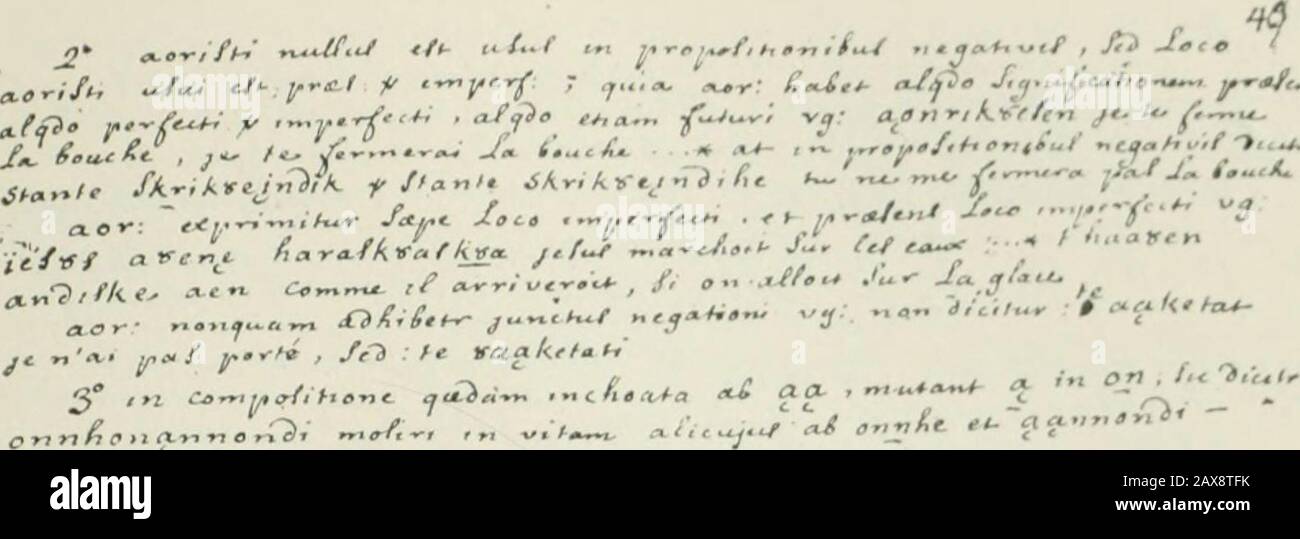 49
2° aoristi nullus est usus in propositionibus negativis, sed Loco
aoristi usui est præs: & imperf: ; quia aor: habet alqdo significationem præsen
alqdo perfecti & imperfecti, alqdo etiam futuri vg: aonrik8elen je te ferme
La bouche, je te fermerai La bouche ...* at in propositionibus negativis
stante skrik8ejndik & stante skrik8ejndihe tu ne me fermera pas La bouche
aor: exprimitur sæpe Loco imperfecti. et præsens Loco imperfecti vg:
ïes8s a8ene haraſk8aſk8a jesus marchoit sur les eaux : ...* t'haa8en
andiske aen comme il arriveroit, si on alloit sur La glace
aor: nonquam adhibetr junctus negationi vg: non dicitur : te aaketat
je n'ai pas porté, sed : te 8aaketati
3° in compositione quædam inchoata ab aa, mutant a in on, sic dicitr
onnhonannondi moliri in vitam alicujus ab onnhe et aannondi —
alamy
Image ID: 2AX8TFK
www.alamy.com